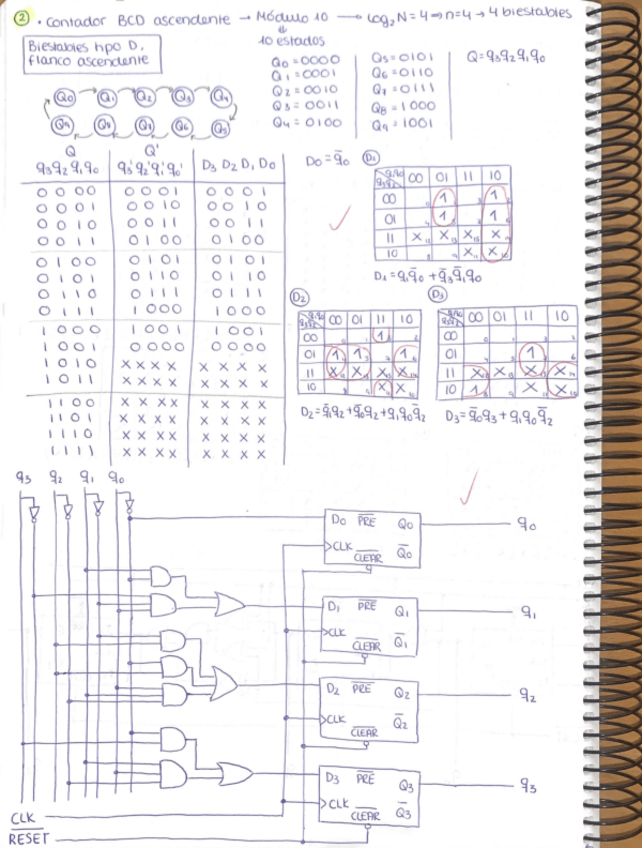 ② · Contador BCD ascendente → Módulo 10 → log₂N=4 ⇒ n=4 → 4 biestables
⇓
10 estados
Biestables tipo D,
flanco ascendente
Q0=0000 Q5=0101 Q=q3q2q1q0
Q1=0001 Q6=0110
Q2=0010 Q7=0111
Q3=0011 Q8=1000
Q4=0100 Q9=1001
Q0 Q1 Q2 Q3 Q4
Q9 Q8 Q7 Q6 Q5
Q Q'
q3q2q1q0 q3'q2'q1'q0' D3 D2 D1 D0
0000 0001 0001
0001 0010 0010
0010 0011 0011
0011 0100 0100
0100 0101 0101
0101 0110 0110
0110 0111 0111
0111 1000 1000
1000 1001 1001
1001 0000 0000
1010 XXXX XXXX
1011 XXXX XXXX
1100 XXXX XXXX
1101 XXXX XXXX
1110 XXXX XXXX
1111 XXXX XXXX
D0=q̄0
D1
q1q0 00 01 11 10
q3q2
00 1 1
01 1 1
11 X X X X
10 X X
D1=q1q̄0+q̄3q̄1q0
D2
q1q0 00 01 11 10
q3q2
00 1
01 1 1 1
11 X X X X
10 X X
D2=q̄1q2+q̄0q2+q1q0q̄2
D3
q1q0 00 01 11 10
q3q2
00
01 1
11 X X X X
10 1 X X
D3=q̄0q3+q1q0q̄2
q3 q2 q1 q0
D0 PRE Q0 q0
CLK
CLEAR Q̄0
D1 PRE Q1 q1
CLK
CLEAR Q̄1
D2 PRE Q2 q2
CLK
CLEAR Q̄2
D3 PRE Q3 q3
CLK
CLEAR Q̄3
CLK
RESET